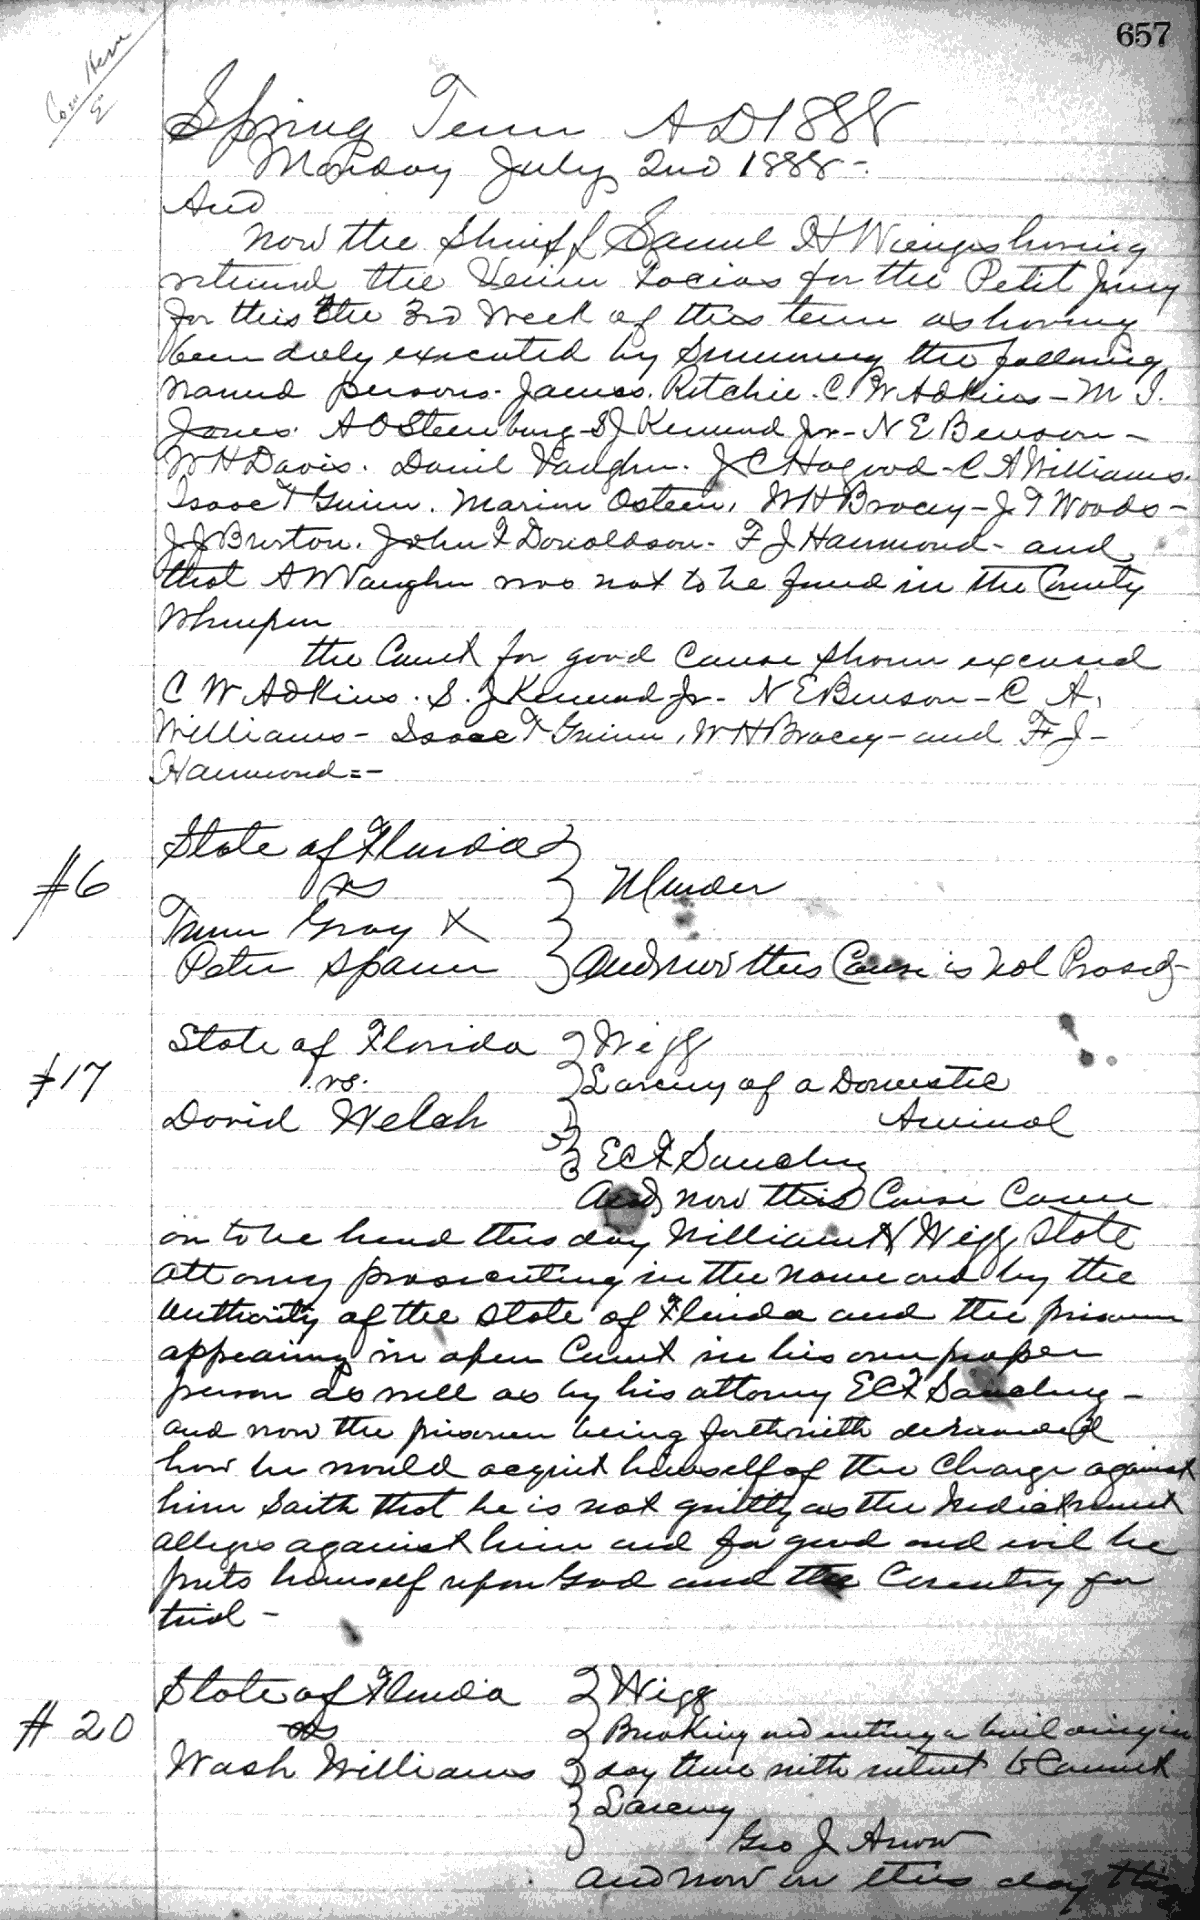 657
Com Here
E
Spring Term A D 1888
Monday July 2nd 1888 -
And
now the Sheriff Samuel H Wienges having
returned the Venire Facias for the Petit Jury
for this the 3rd Week of this term as having
been duly executed by Summoning the following
named persons. James. Ritchie. C W Adkins - M I.
Jones. A O Steenburg - S J Kennard Jr - N E Benson -
W H Davis. Daniel Vaughn. J C Hagood - C A Williams.
Isaac T Guinn. Marion Osteen, W H Bracey - J T Woods -
J J Burton. John F Donaldson - F J Hammond - and
that A W Vaughn was not to be found in the County
Whereupon
the Court for good Cause Shown excused
C W Adkins. S. J Kennard Jr - N E Benson - C A.
Williams - Isaac T Guinn, W H Bracey - and F J -
Hammond = -
State of Florida
#6 vs Murder
Gray &
Peter Spann And now this Cause is Nol Prosed -
State of Florida Wigg
#17 vs. Larceny of a Domestic
David Welch Animal
E C F Sanchez
And now this Cause Came
on to be heard this day William H Wigg State
attorney prosecuting in the name and by the
authority of the State of Florida and the prisoner
appearing in open Court in his own proper
person as well as by his attorney E C F Sanchez -
and now the prisoner being forthwith demanded
how he would acquit himself of the Charge against
him Saith that he is not guilty as the Indictment
alleges against him and for good and evil he
puts himself upon God and the Country for
trial -
State of Florida Wigg
#20 vs Breaking and entering a building in
Wash Williams day time with intent to Commit
Larceny
Geo J Arnow
And now on this day this